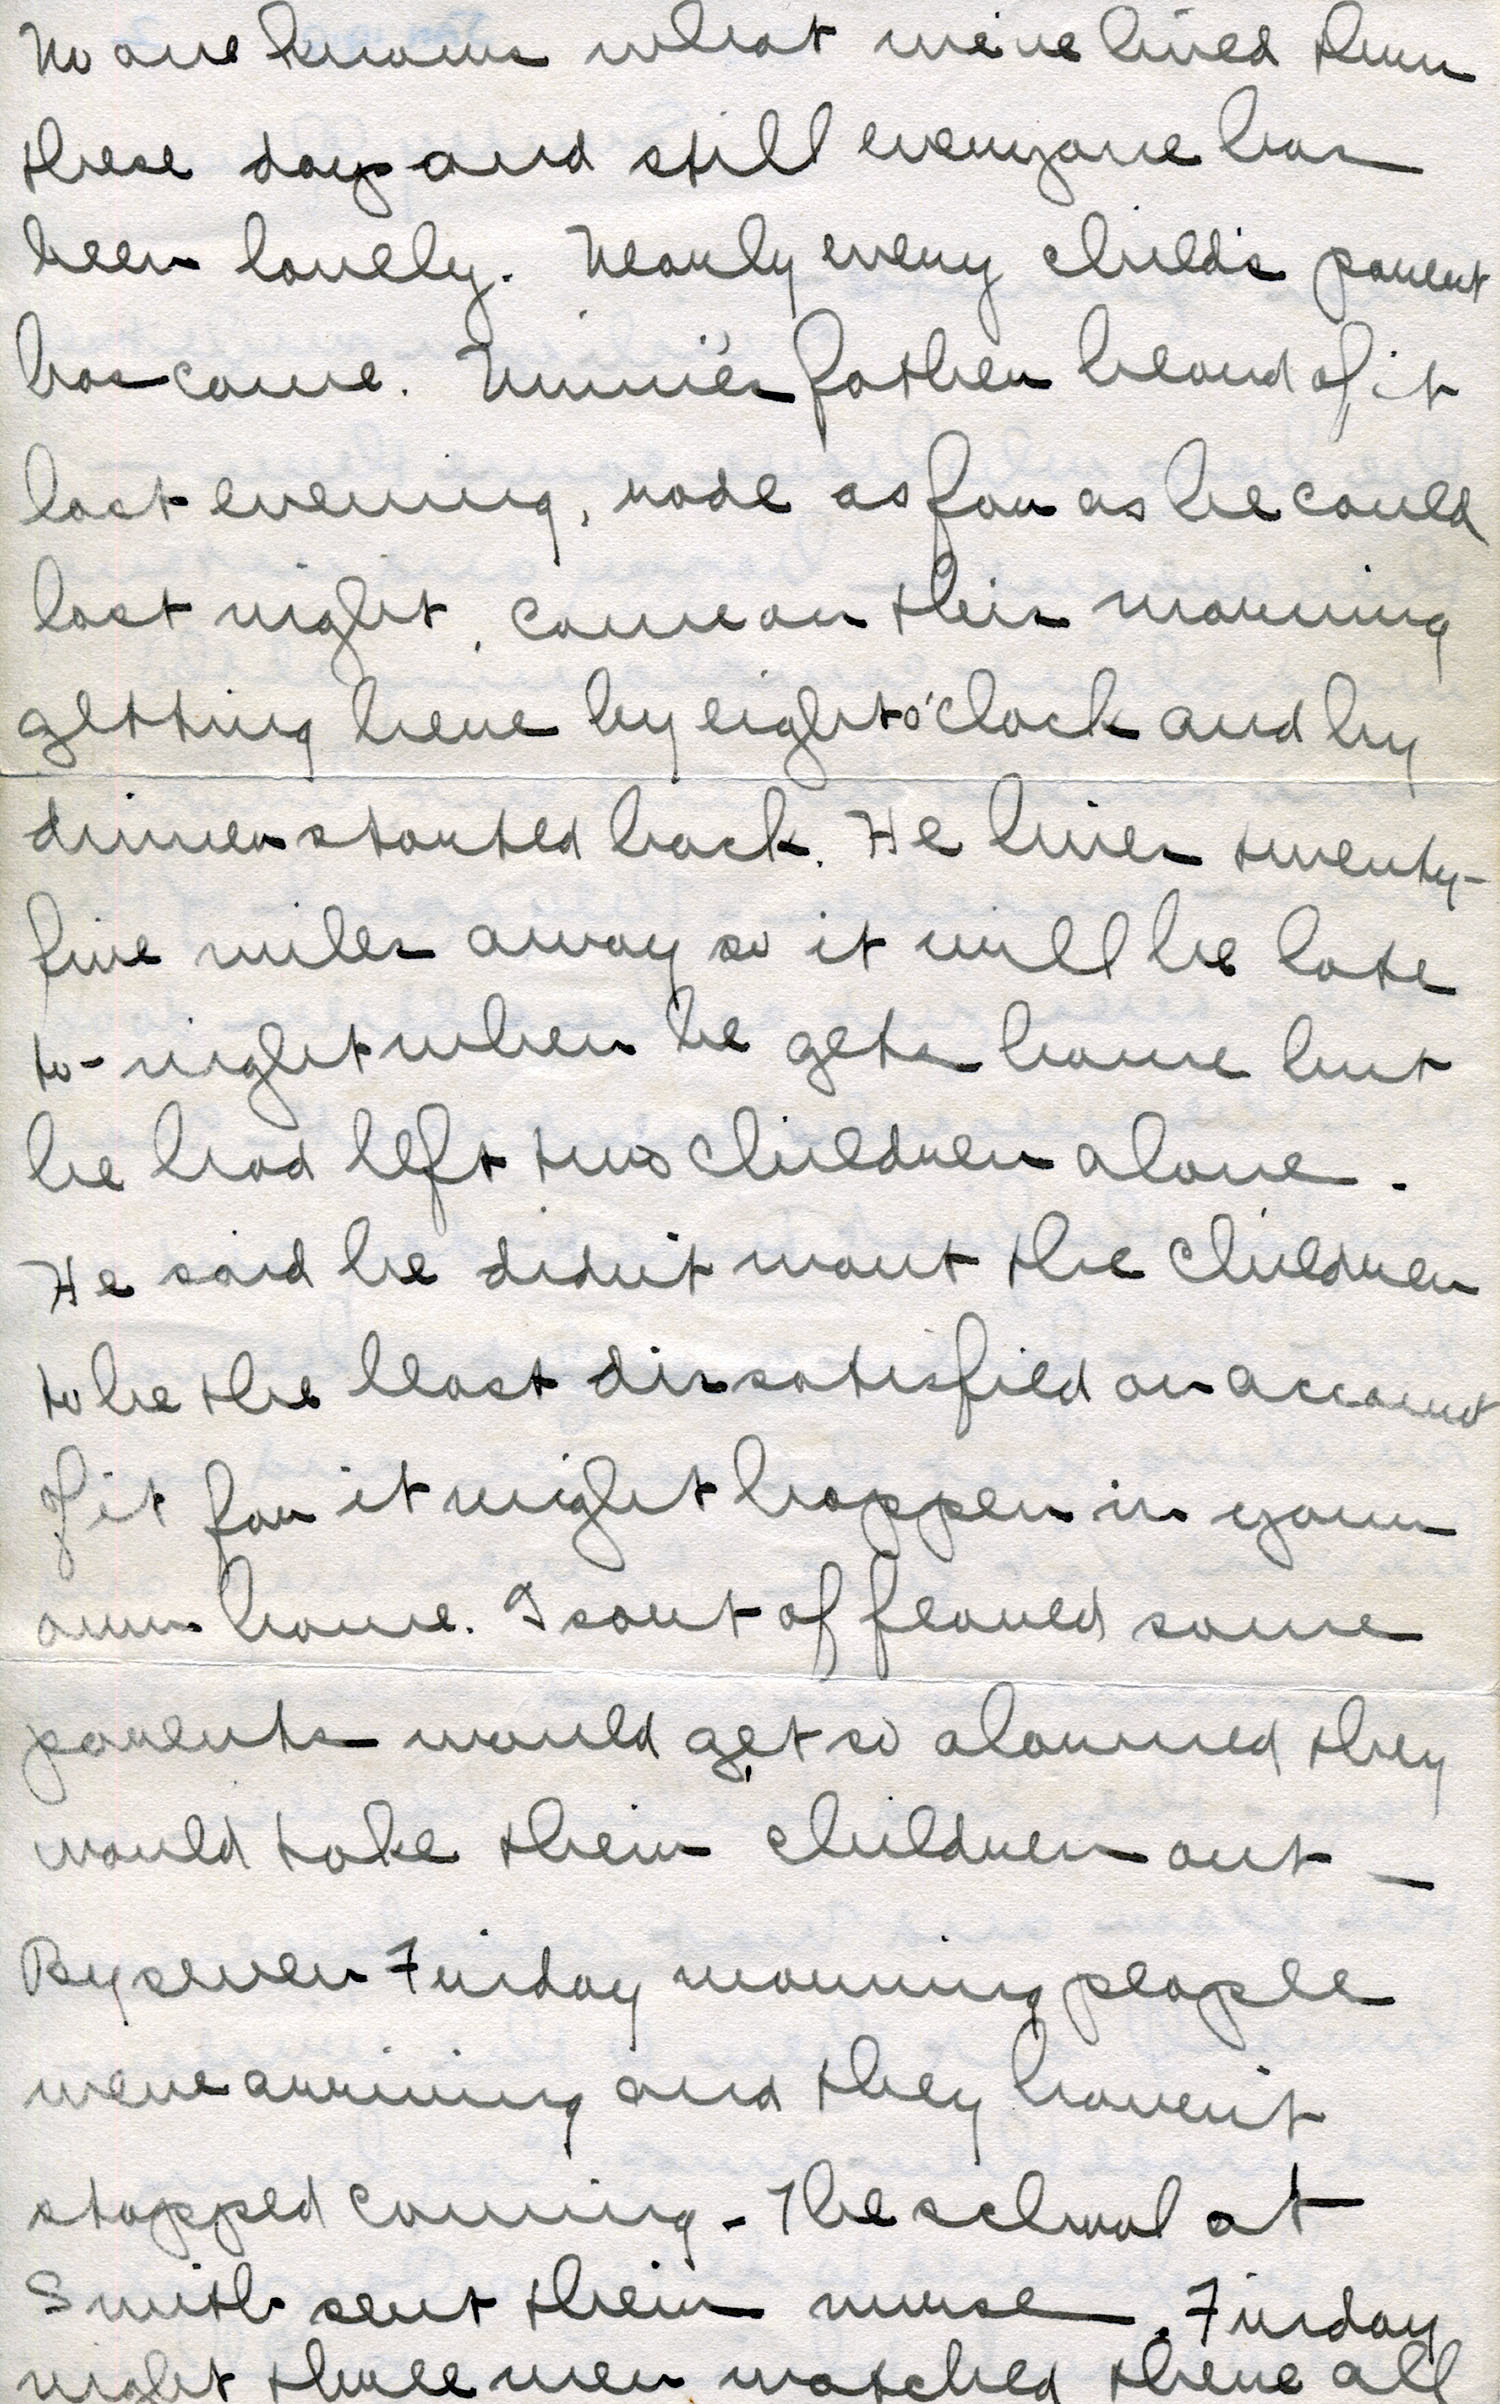 No one knows what we've lived thru
these days and still everyone has
been lovely. Nearly every child's parent
has come. Minnie's father heard of it
last evening, rode as far as he could
last night, came on this morning
getting here by eight o'clock and by
dinner started back. He lives twenty-
five miles away so it will be late
to-night when he gets home but
he had left two children alone.
He said he didn't want the children
to be the least dissatisfied on account
of it for it might happen in your
own home. I sort of feared some
parents would get so alarmed they
would take their children out —
By seven Friday morning people
were arriving and they haven't
stopped coming - The school at
Smith sent their nurse. Friday
night three men watched there all